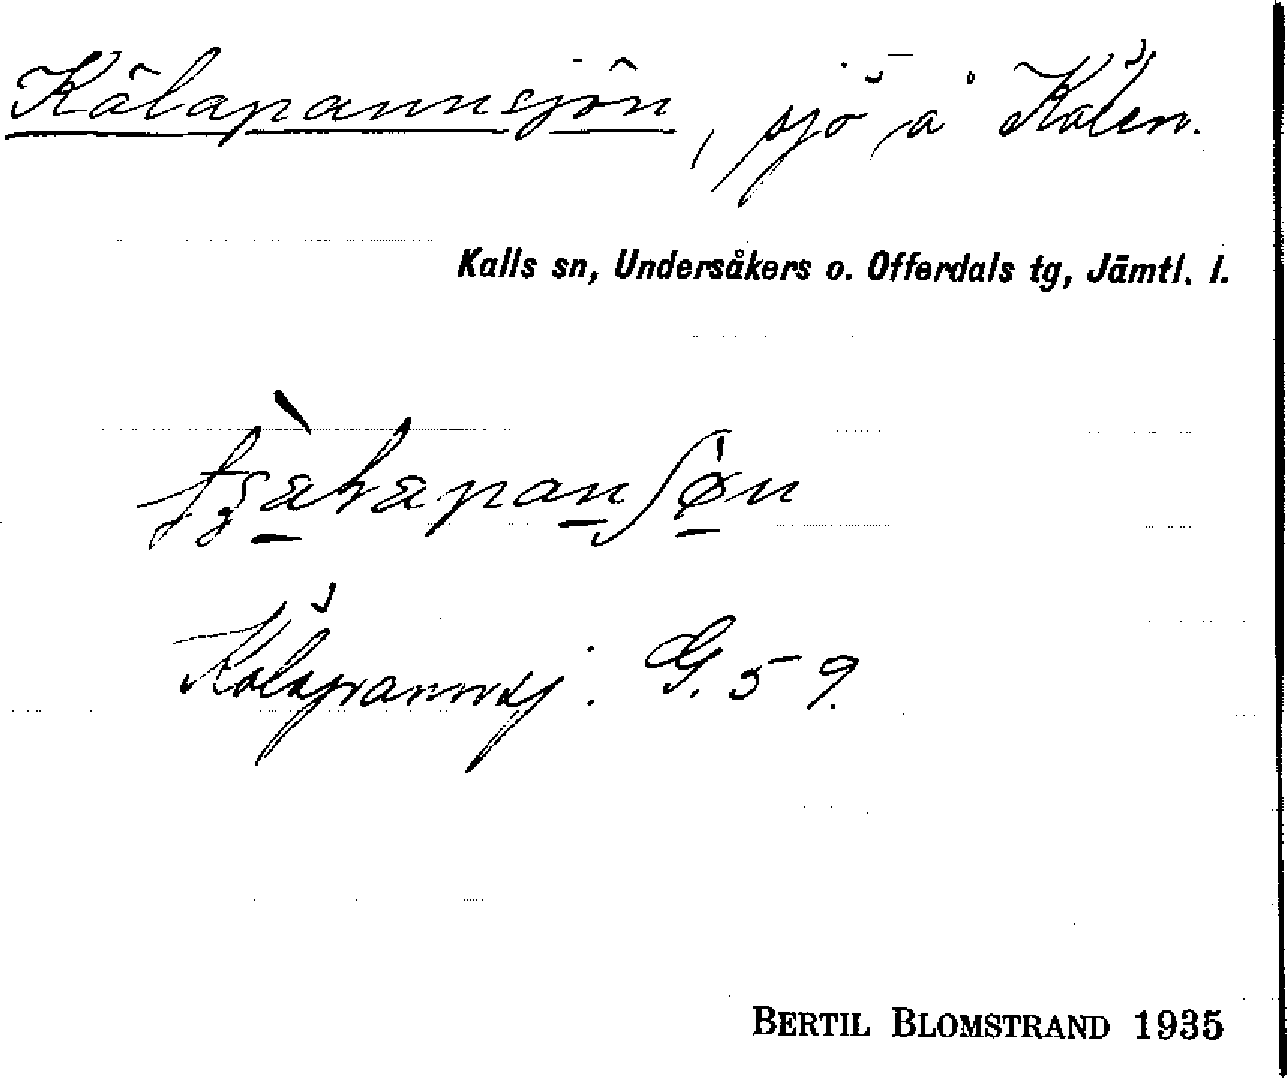 Kölapannsjön, sjö å Kölen.
Kalls sn, Undersåkers o. Offerdals tg, Jämtl. l.
Kölapannsj. G. 59.
BERTIL BLOMSTRAND 1935